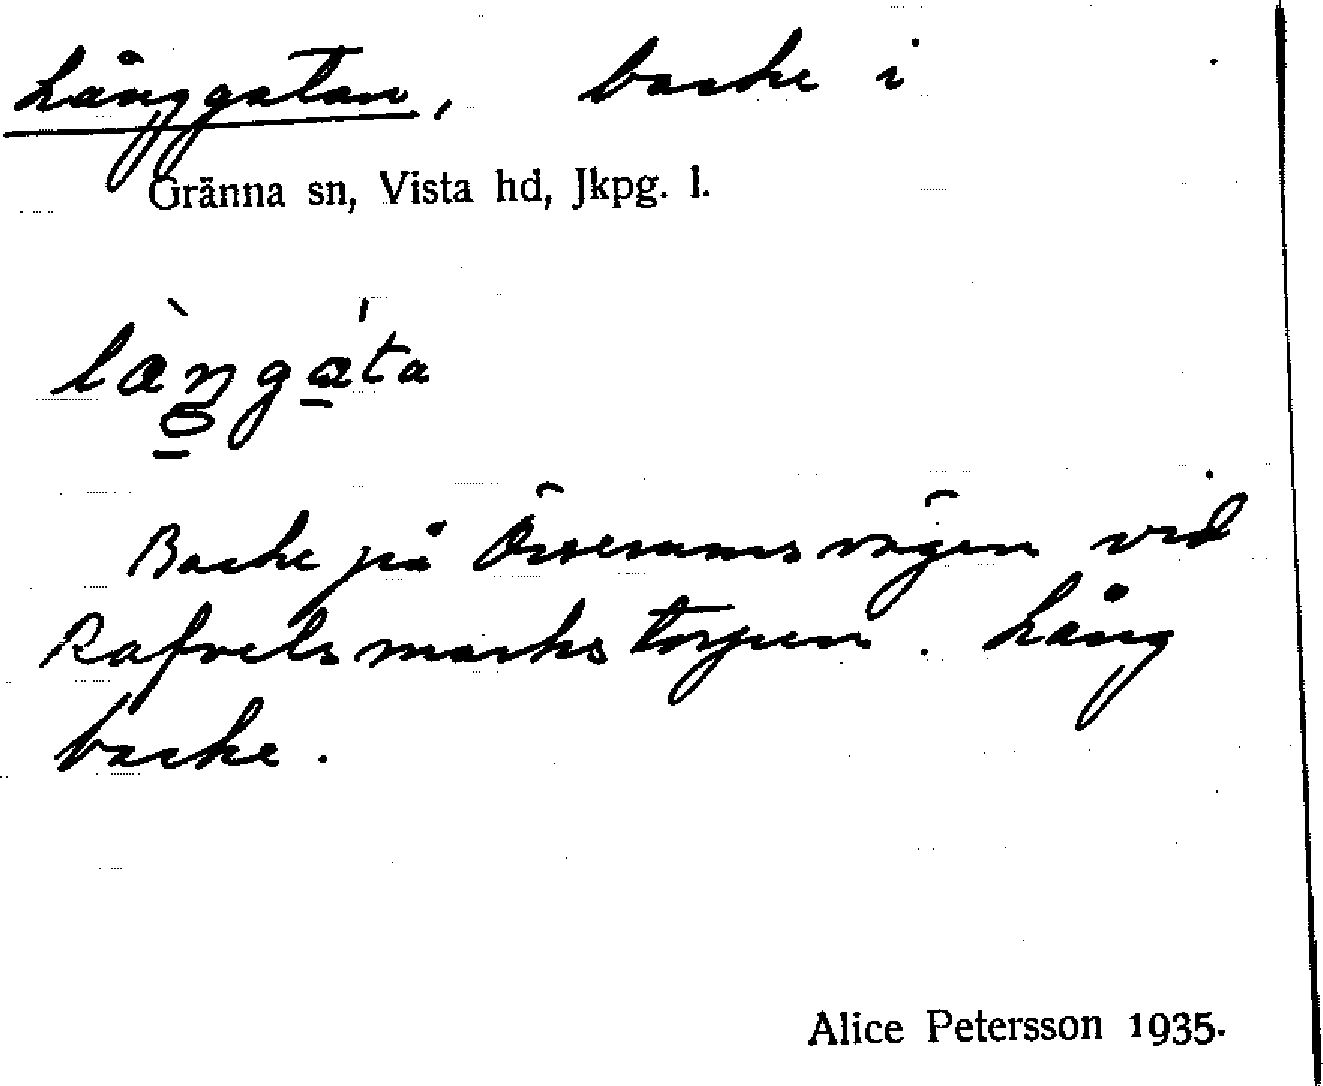 Långgatan, backe i
Gränna sn, Vista hd, Jkpg. l.
långata
Backe på Örserumsvägen vid
Rafvelsmarkstorpen. Lång
backe.
Alice Petersson 1935.